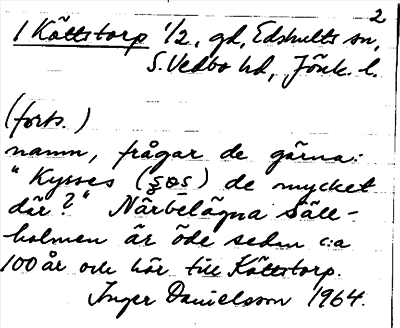 2
1 Köttstorp 1/2, gd, Edshults sn,
S. Vedbo hd, Jönk. l.
(forts.)
namn, frågar de gärna:
"Kysses (ʂøs) de mycket
där?" Närbelägna Säll-
holmen är öde sedan c:a
100 år och hör till Köttstorp.
Inger Danielsson 1964.